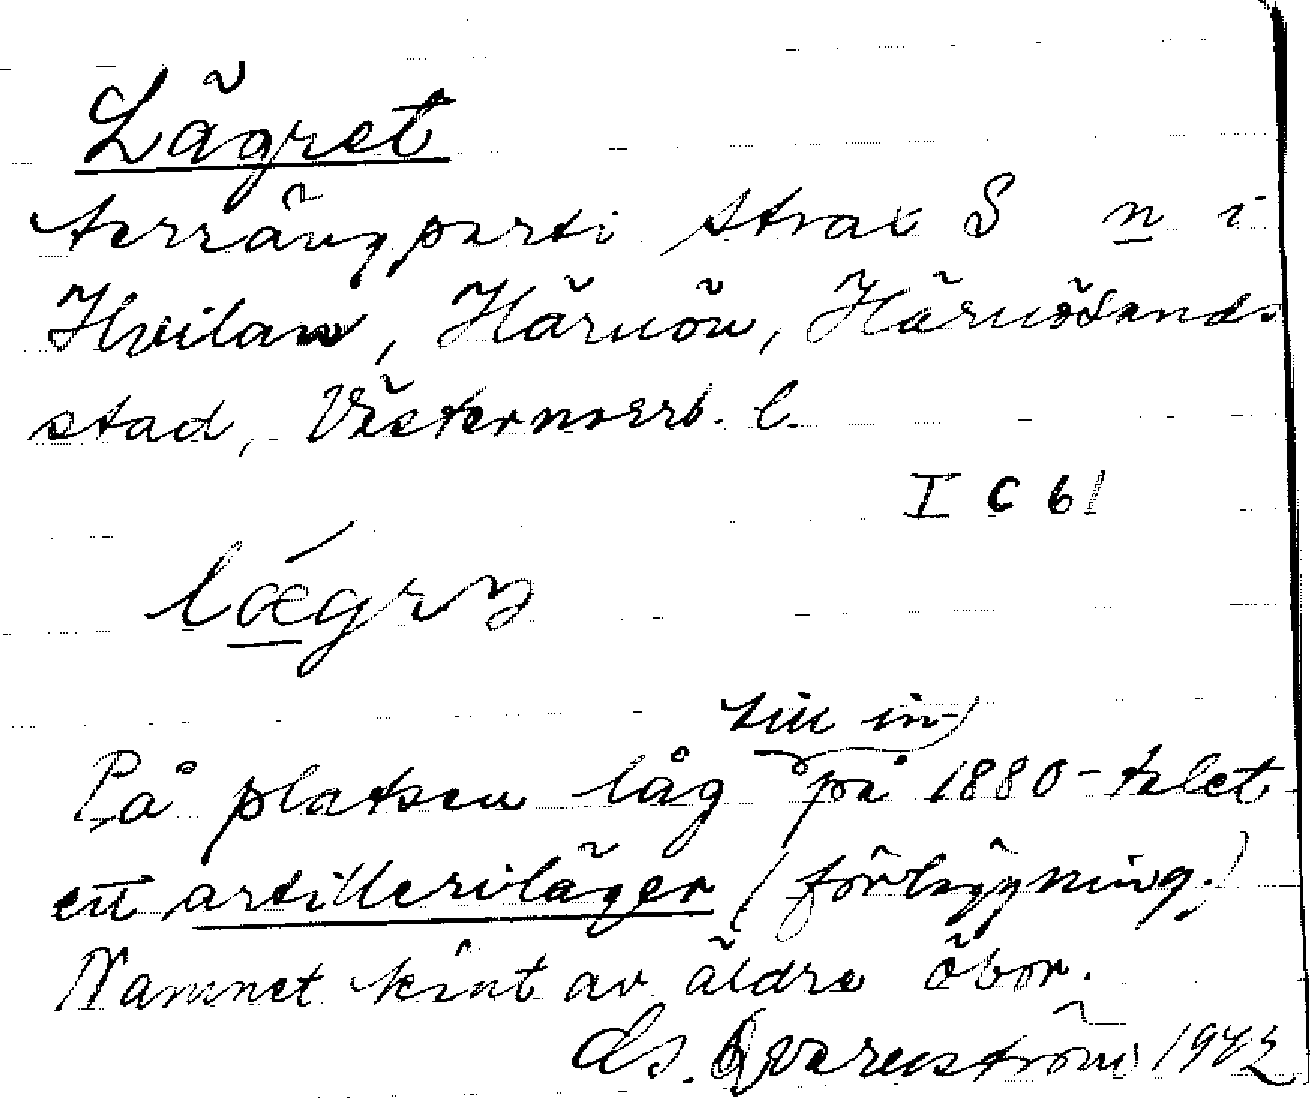 Lägret
terrängparti strax S n i
Hvilan, Härnön, Härnösands
stad, Västernorrl. l.
I C 61
till in-
På platsen låg på 1880-talet
ett artilleriläger (förläggning.)
Namnet känt av äldre öbor.
Ds. Qvarnström 1942